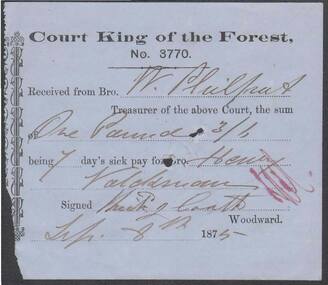 Court King of the Forest,
No. 3770.
Received from Bro. W. Philpot
Treasurer of the above Court, the sum
of One Pound 3/6
being 7 day's sick pay for Bro. Henry
Signed
Woodward.
Sep. 8th 1875